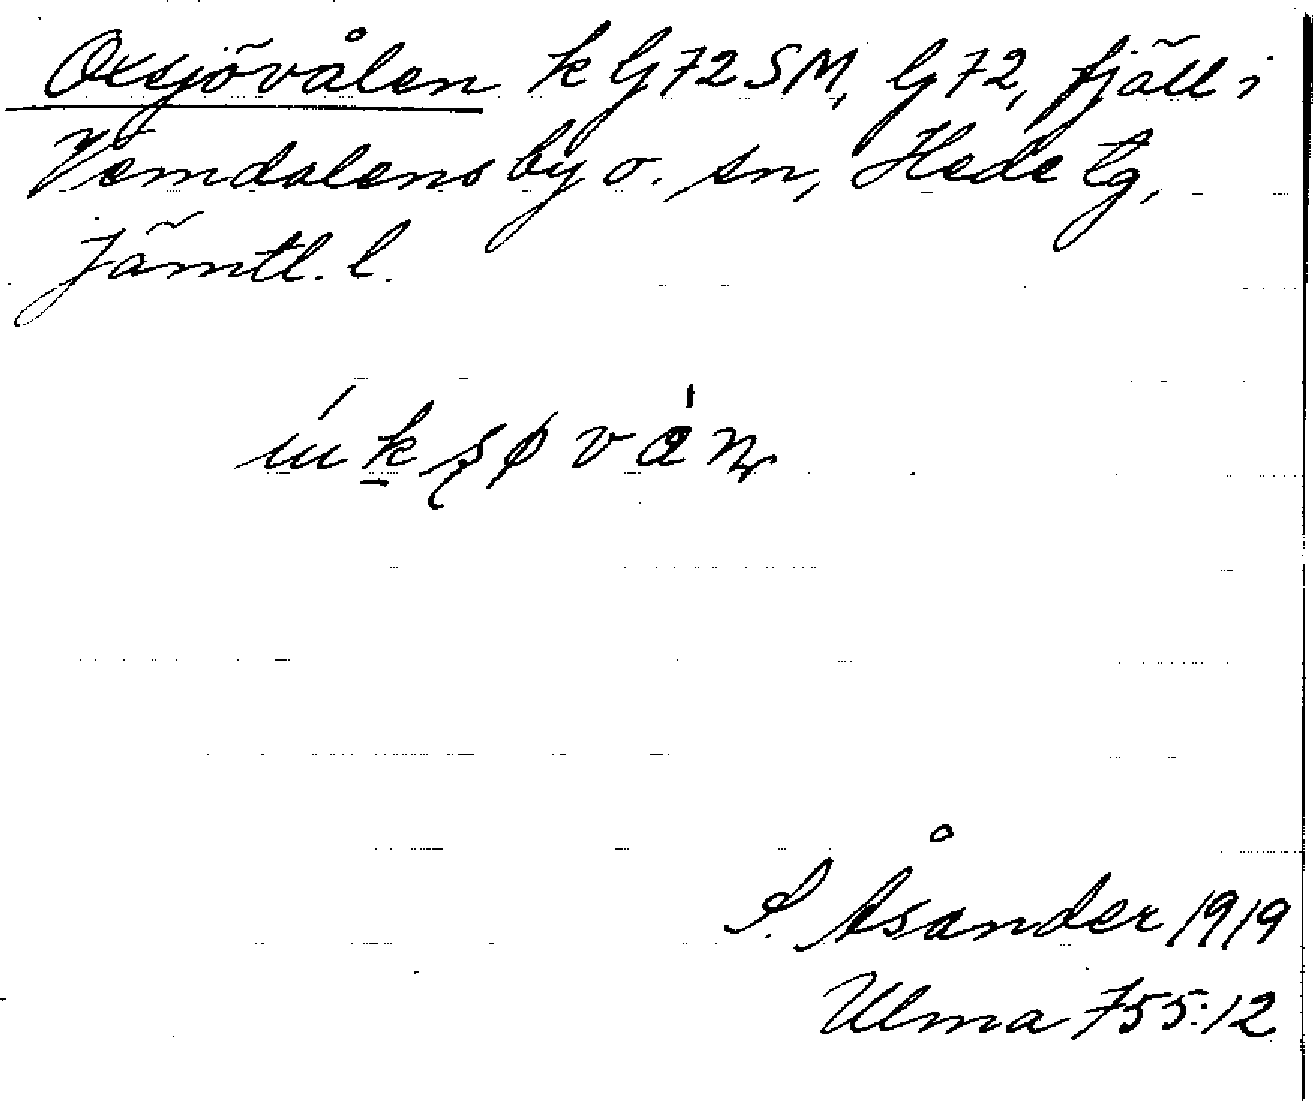 Oxsjövålen k G72SM, G72, fjäll i
Vemdalens by o. sn, Hede tg,
Jämtl. l.
S. Åsander 1919
Ulma 755:12